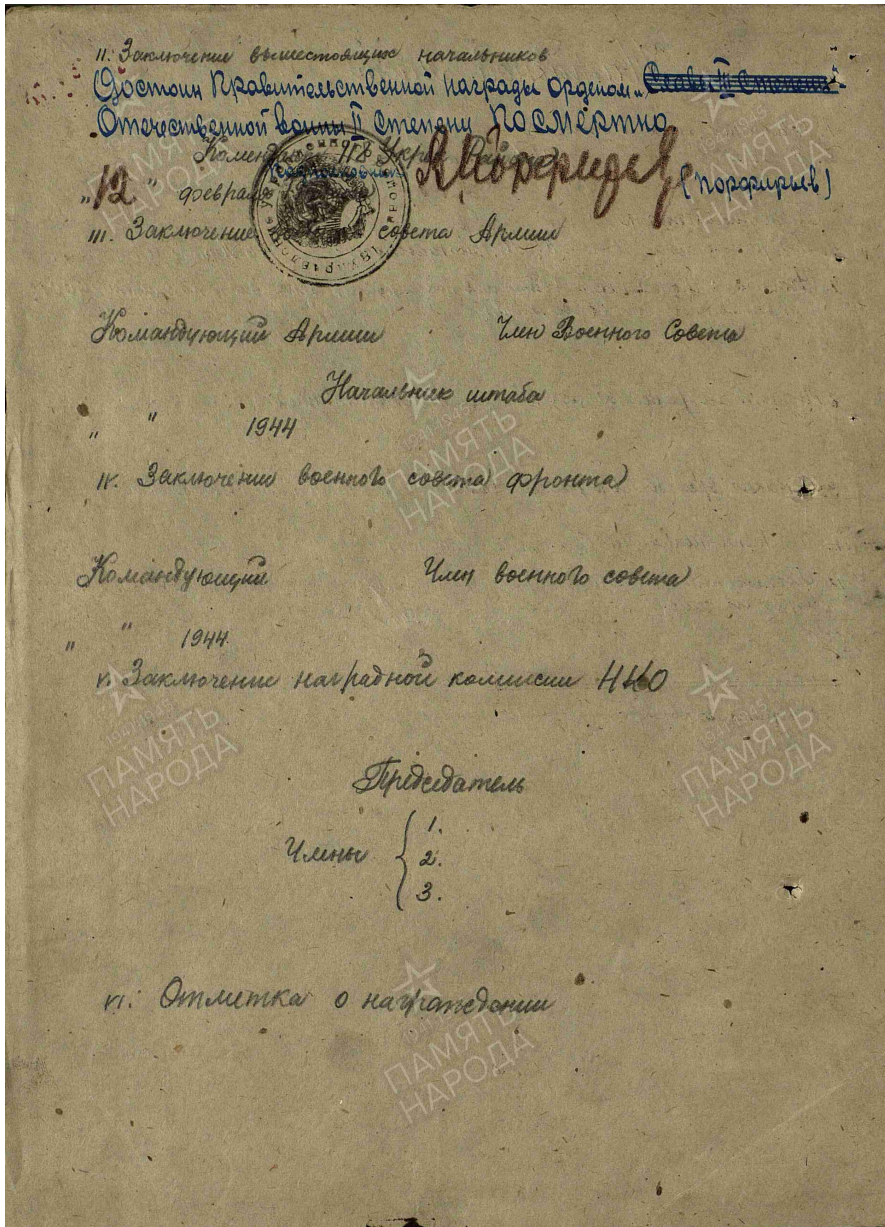 II. Заключение вышестоящих начальников
Достоин Правительственной награды орденом „Славы III Степени"
Отечественной войны II Степени Посмертно
118 Укреп. Района
„12" февраля (Порфирьев)
III. Заключение совета Армии
Командующий Армии Член Военного Совета
Начальник штаба
„ " 1944
IV. Заключение военного совета фронта
Командующий Член военного совета
„ " 1944
V. Заключение наградной комиссии НКО
Председатель
Члены { 1.
2.
3.
VI. Отметка о награждении
ПАМЯТЬ
НАРОДА